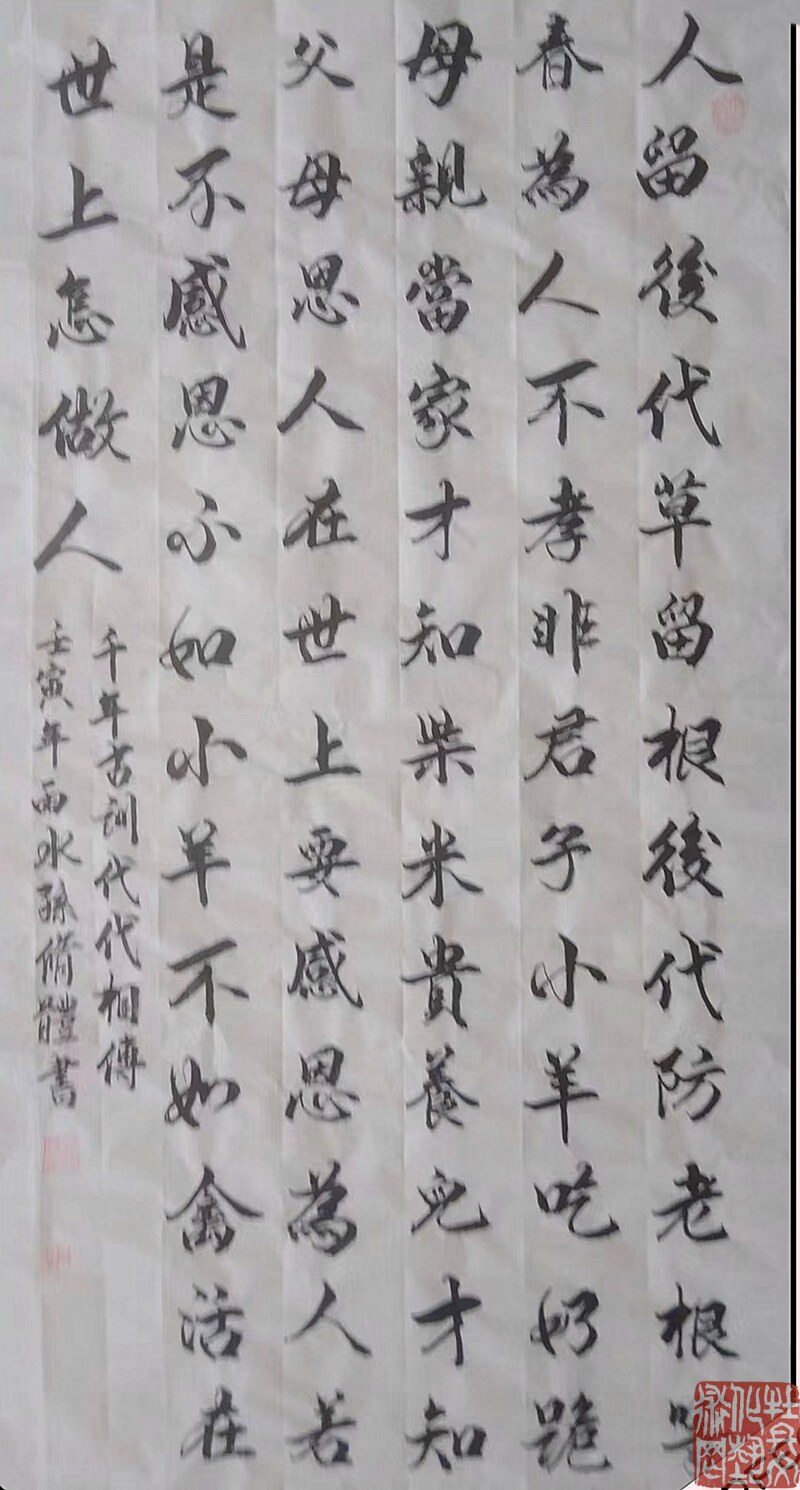 人留後代草留根後代防老根
春為人不孝非君子小羊吃奶跪
母親當家才知柴米貴養兒才知
父母思人在世上要感恩為人若
是不感恩不如小羊不如禽活在
世上怎做人
千年古訓代代相傳
壬寅年雨水孫脩體書